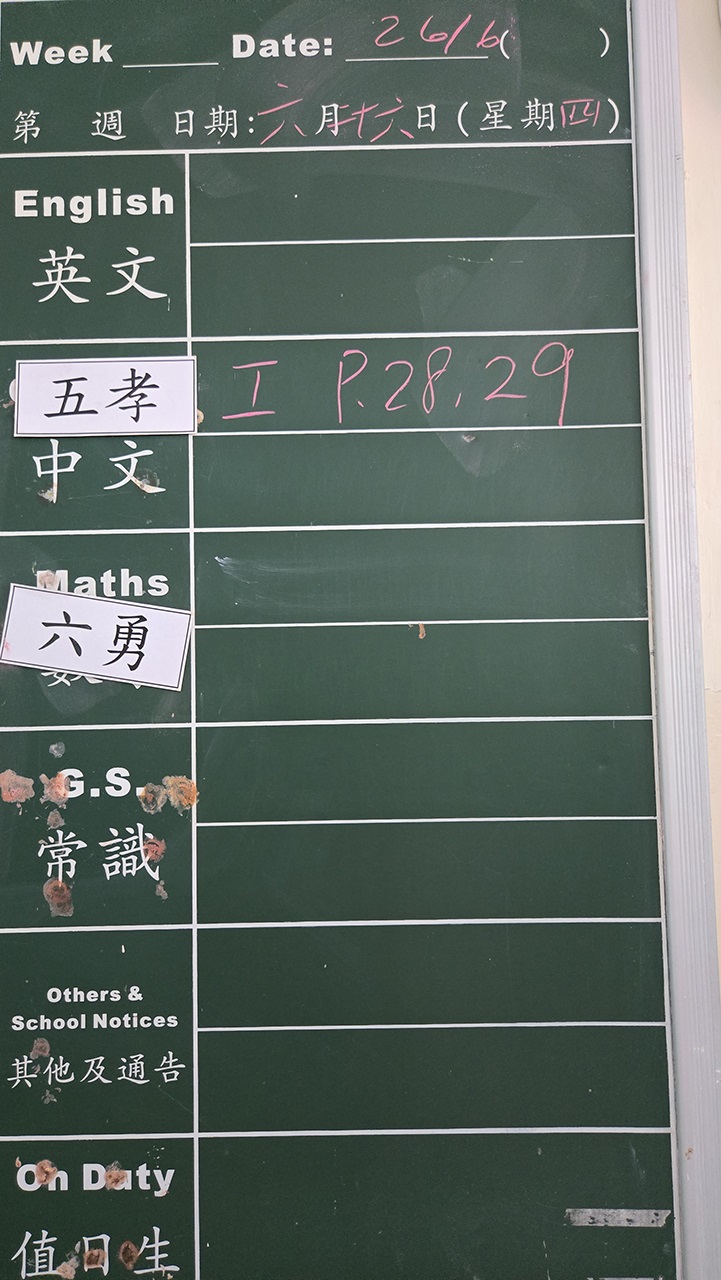 Week ____ Date: 26/6( )
第 週 日期:六月廿六日(星期四)
English
英文
五孝 I P.28.29
中文
Maths
六勇
G.S.
常識
Others &
School Notices
其他及通告
On Duty
值日生